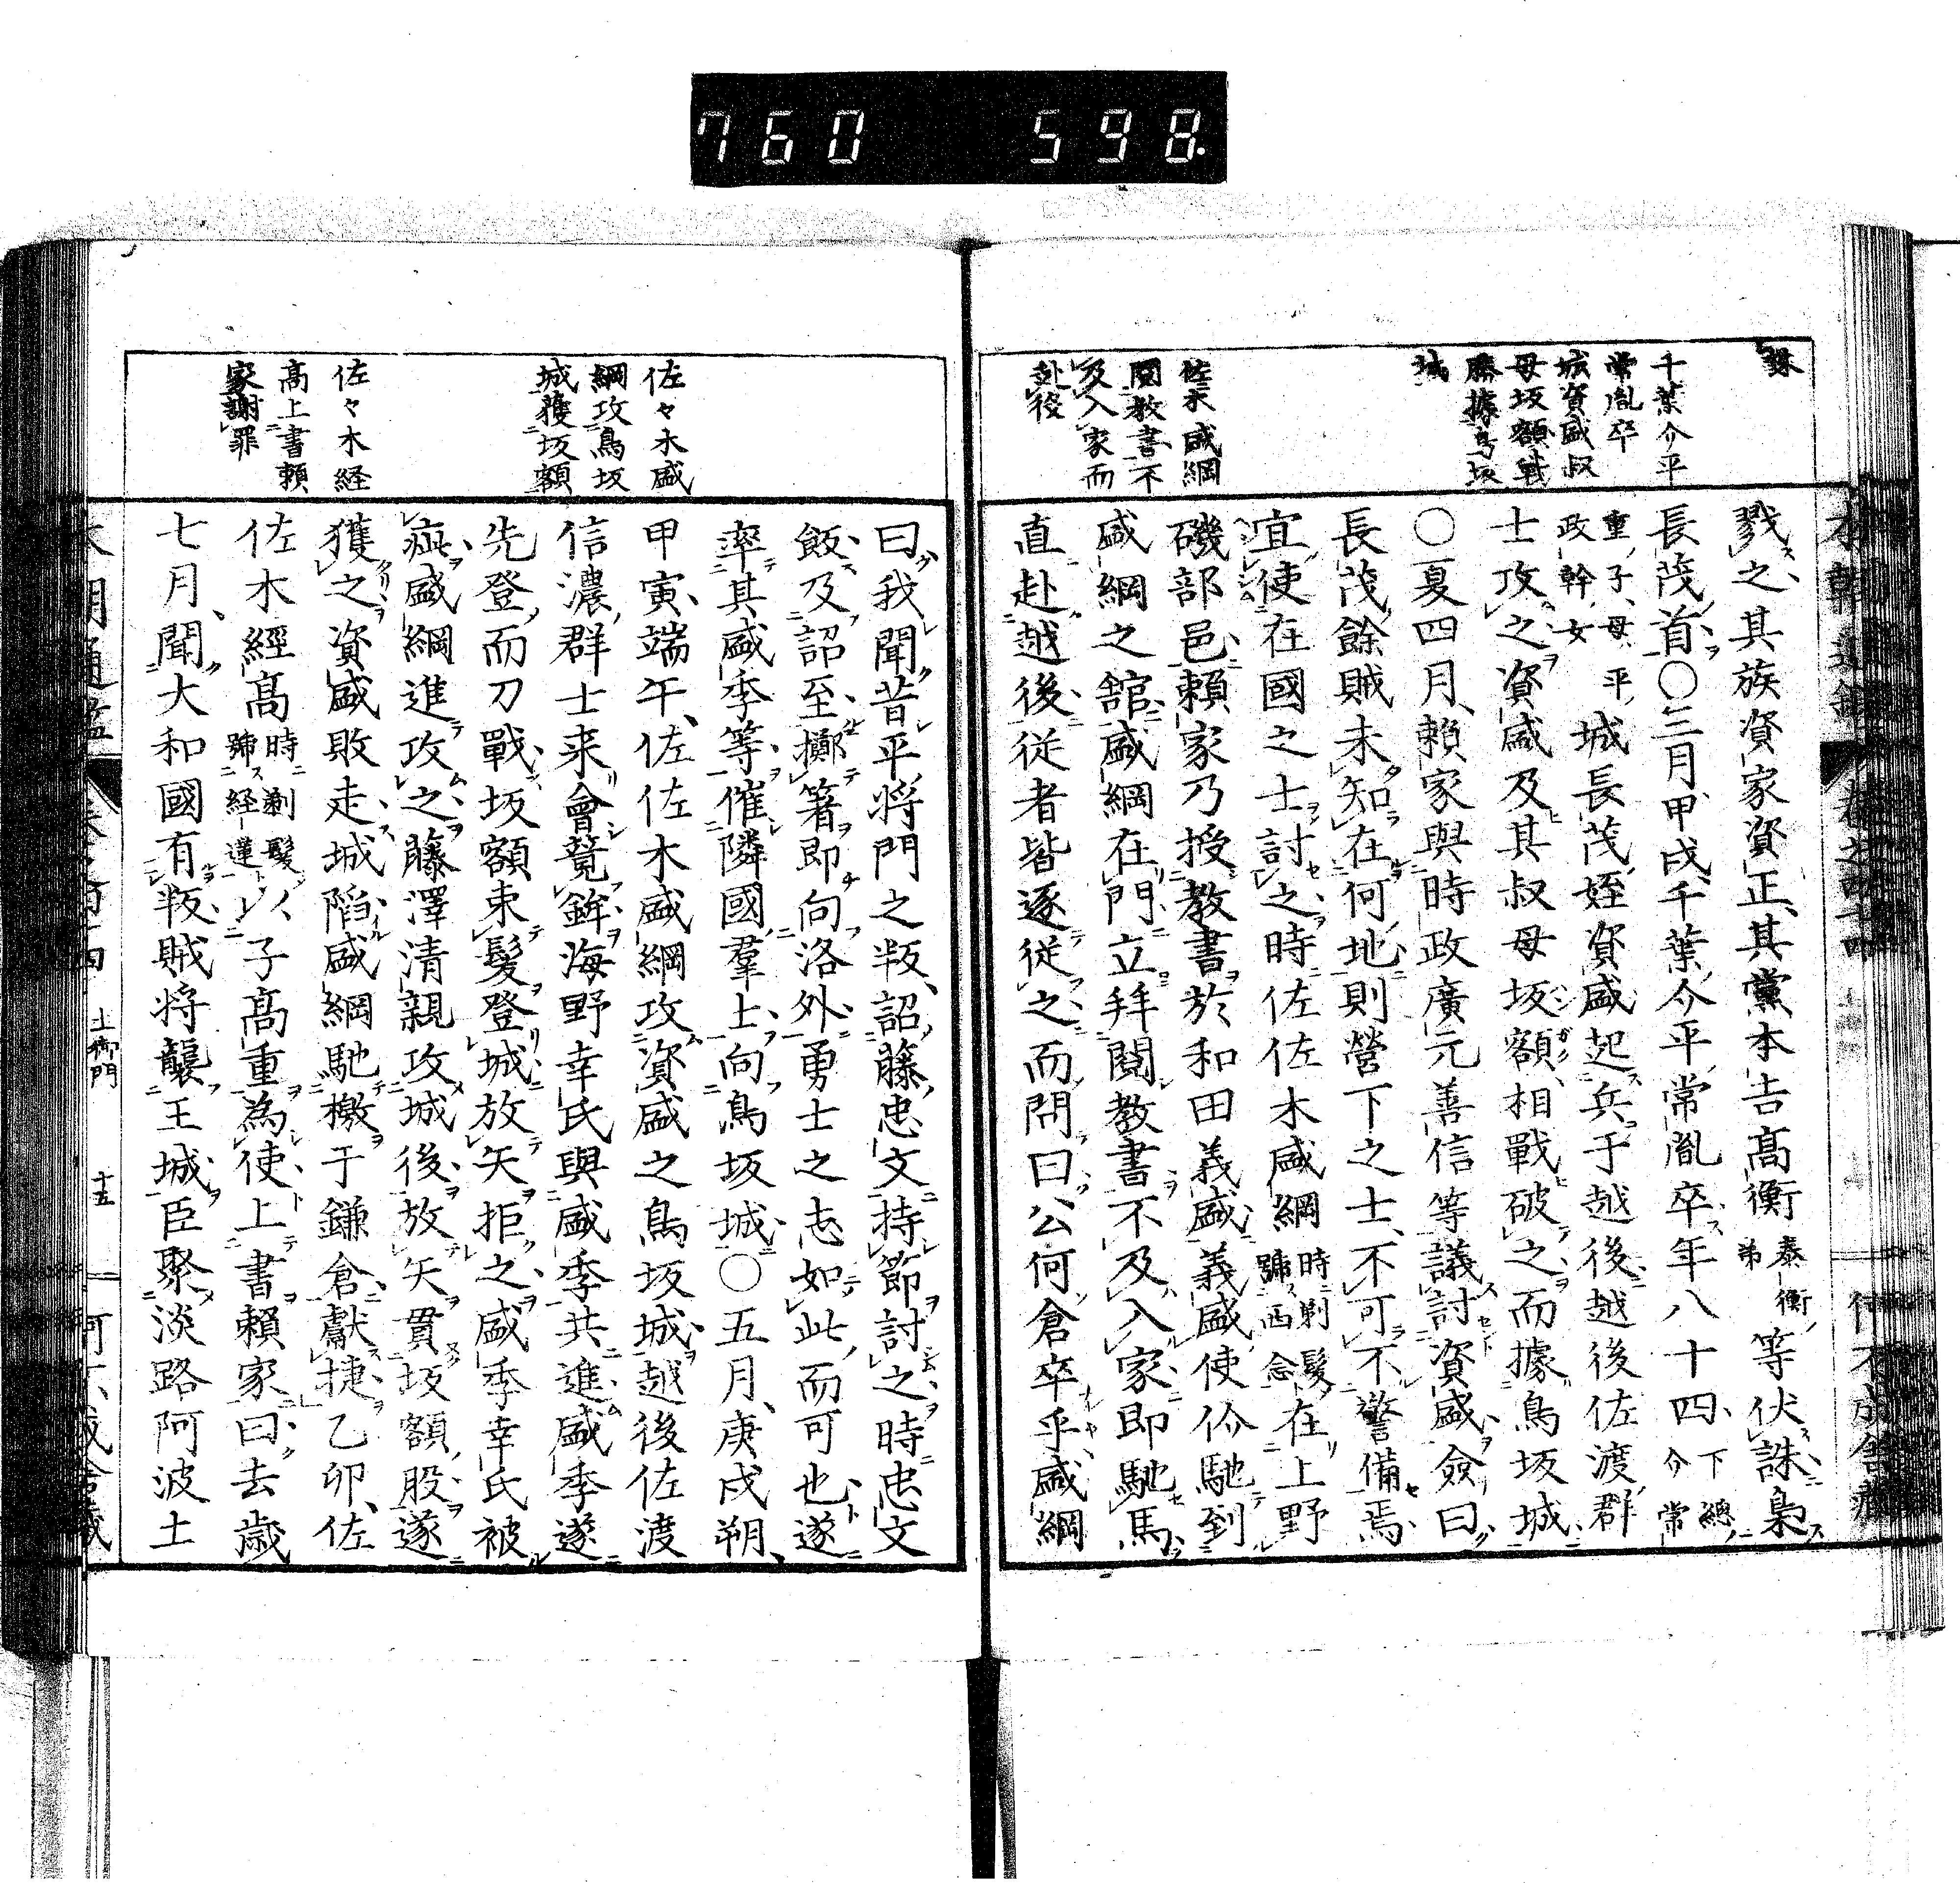 760 598.
誅
千葉介平
常胤卒
城資盛叔
母坂額戰
勝據鳥坂
城
佐木盛綱
閲教書不
及入家而
赴後
戮之其族資家資正其黨本吉高衡泰衡弟等伏誅梟
長茂首〇三月甲戌千葉介平常胤卒年八十四下總介常
重子母平政幹女城長茂姪資盛起兵于越後越後佐渡群
士攻之資盛及其叔母坂額相戰破之而據鳥坂城
〇夏四月賴家與時政廣元善信等議討資盛僉曰
長茂餘賊未知在何地則營下之士不可不警備焉
宜使在國之士討之時佐佐木盛綱時剃髮號西念在上野
磯部邑賴家乃授教書於和田義盛義盛使价馳到
盛綱之館盛綱在門立拜閲教書不及入家即馳馬
直赴越後従者皆逐従之而問曰公何倉卒乎盛綱
佐々木盛
綱攻鳥坂
城獲坂額
佐々木経
高上書賴
家謝罪
曰我聞昔平将門之叛詔藤忠文持節討之時忠文
飯及詔至擲箸即向洛外勇士之志如此而可也遂
率其盛季等催隣國羣士向鳥坂城〇五月庚戌朔
甲寅端午佐佐木盛綱攻資盛之鳥坂城越後佐渡
信濃群士来會競鉾海野幸氏與盛季共進盛季遂
先登而刀戰坂額束髮登城放矢拒之盛季幸氏被
疵盛綱進攻之藤澤清親攻城後放矢貫坂額股遂
獲之資盛敗走城陷盛綱馳檄于鎌倉獻捷乙卯佐
佐木經高時剃髮號経蓮以子高重為使上書賴家曰去歳
七月聞大和國有叛賊将襲王城臣聚淡路阿波土
土御門 十五